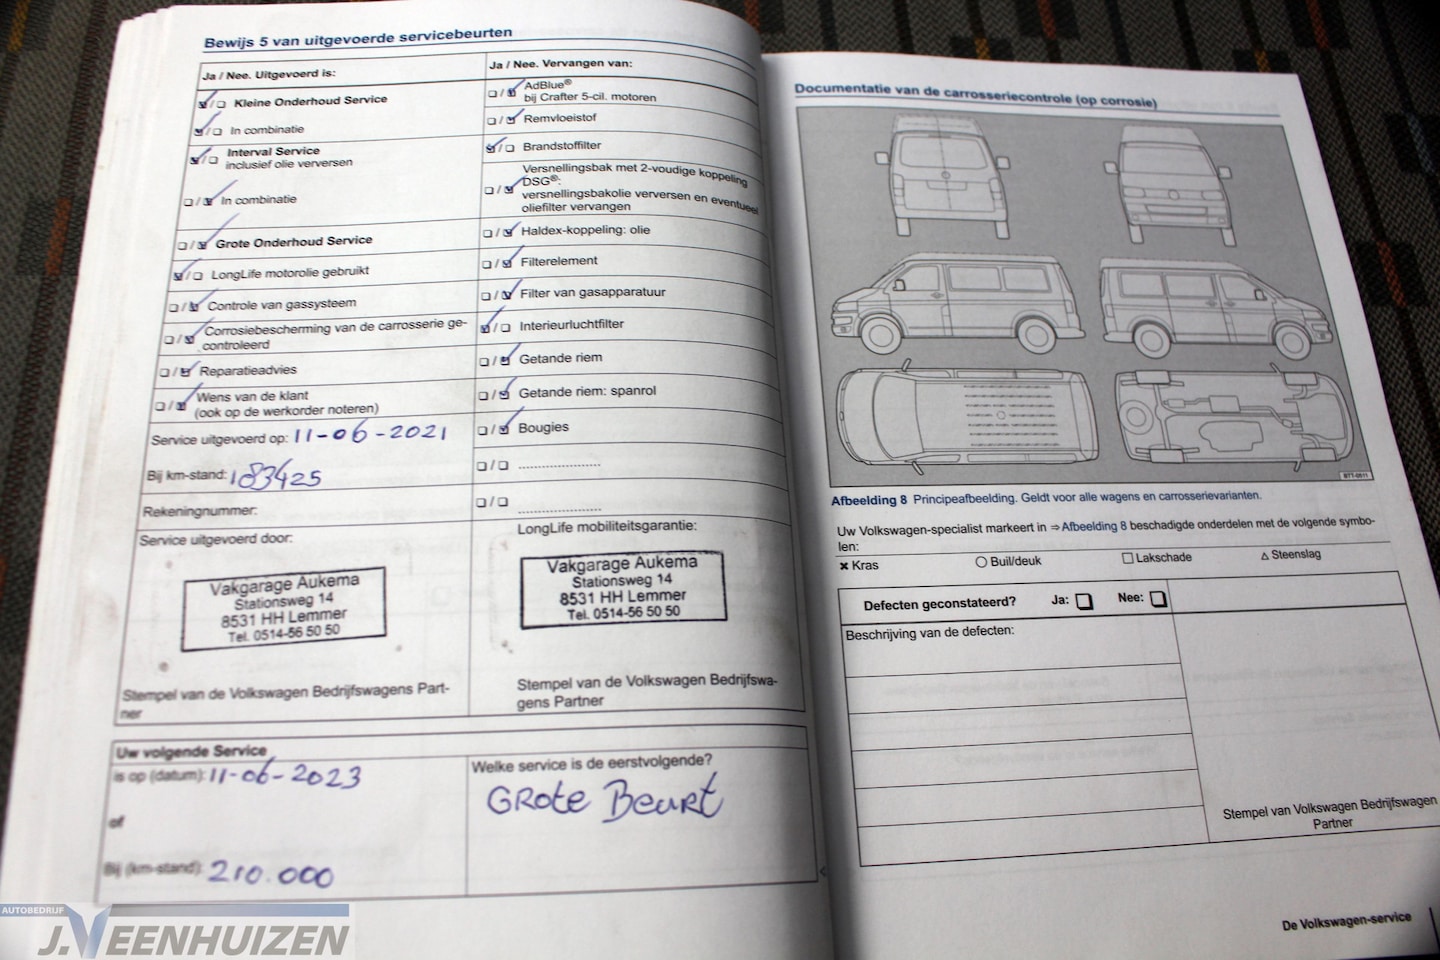 Bewijs 5 van uitgevoerde servicebeurten
Ja / Nee. Uitgevoerd is:
Kleine Onderhoud Service
In combinatie
Interval Service
inclusief olie verversen
In combinatie
Grote Onderhoud Service
LongLife motorolie gebruikt
Controle van gassysteem
Corrosiebescherming van de carrosserie ge-
controleerd
Reparatieadvies
Wens van de klant
(ook op de werkorder noteren)
Service uitgevoerd op: 11-06-2021
Bij km-stand: 183425
Rekeningnummer:
Service uitgevoerd door:
Vakgarage Aukema
Stationsweg 14
8531 HH Lemmer
Tel. 0514-56 50 50
Stempel van de Volkswagen Bedrijfswagens Part-
ner
Ja / Nee. Vervangen van:
AdBlue®
bij Crafter 5-cil. motoren
Remvloeistof
Brandstoffilter
Versnellingsbak met 2-voudige koppeling
DSG®:
versnellingsbakolie verversen en eventueel
oliefilter vervangen
Haldex-koppeling: olie
Filterelement
Filter van gasapparatuur
Interieurluchtfilter
Getande riem
Getande riem: spanrol
Bougies
LongLife mobiliteitsgarantie:
Vakgarage Aukema
Stationsweg 14
8531 HH Lemmer
Tel. 0514-56 50 50
Stempel van de Volkswagen Bedrijfswa-
gens Partner
Uw volgende Service
is op (datum): 11-06-2023
of
Bij (km-stand): 210.000
Welke service is de eerstvolgende?
GROTE BEURT
Documentatie van de carrosseriecontrole (op corrosie)
BTT-0511
Afbeelding 8 Principeafbeelding. Geldt voor alle wagens en carrosserievarianten.
Uw Volkswagen-specialist markeert in ⇒ Afbeelding 8 beschadigde onderdelen met de volgende symbo-
len:
✖ Kras ○ Buil/deuk □ Lakschade △ Steenslag
Defecten geconstateerd? Ja: Nee:
Beschrijving van de defecten:
Stempel van Volkswagen Bedrijfswagen
Partner
De Volkswagen-service
AUTOBEDRIJF
J.VEENHUIZEN